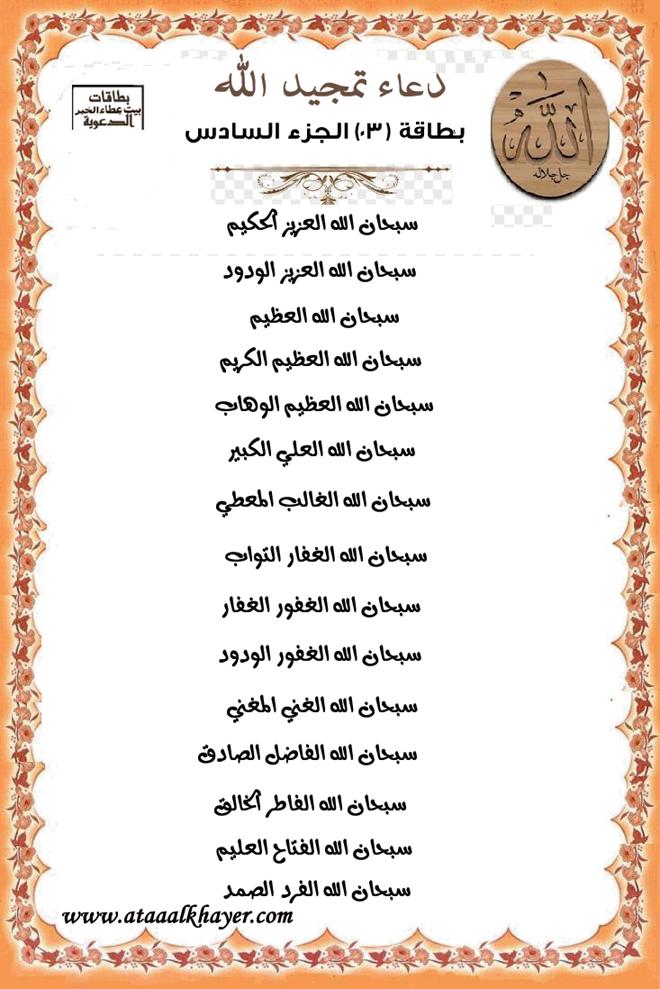 دعاء تمجيد الله
بطاقة (٠٣) الجزء السادس
بطاقات
بيت عطاء الخير
الدعوية
الله
جل جلاله
سبحان الله العزيز الحكيم
سبحان الله العزيز الودود
سبحان الله العظيم
سبحان الله العظيم الكريم
سبحان الله العظيم الوهاب
سبحان الله العلي الكبير
سبحان الله الغالب المعطي
سبحان الله الغفار التواب
سبحان الله الغفور الغفار
سبحان الله الغفور الودود
سبحان الله الغني المغني
سبحان الله الفاضل الصادق
سبحان الله الفاطر الخالق
سبحان الله الفتاح العليم
سبحان الله الفرد الصمد
www.ataaalkhayer.com